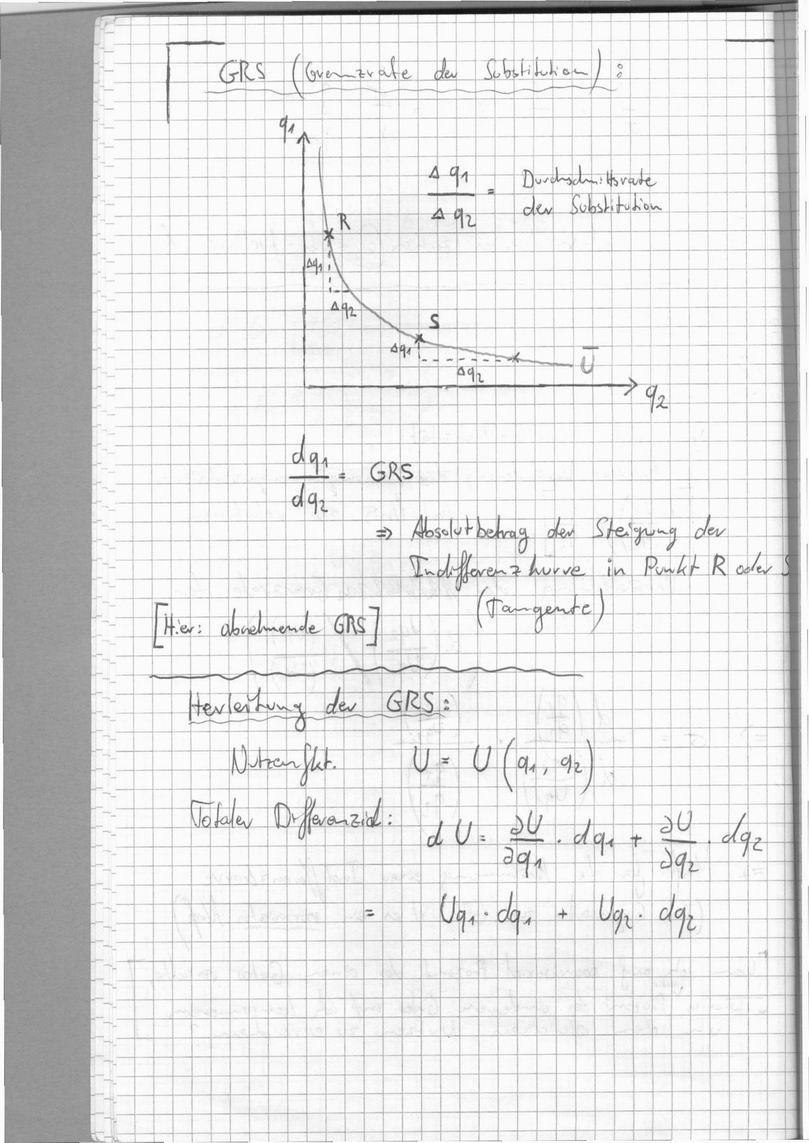 GRS (Grenzrate der Substitution):
q1
Δq1 / Δq2 = Durchschnittsrate
der Substitution
R
Δq1
Δq2
S
Δq1
Δq2
Ū
q2
dq1 / dq2 = GRS
⇒ Absolutbetrag der Steigung der
Indifferenzkurve in Punkt R oder S
(Tangente)
[Hier: abnehmende GRS]
Herleitung der GRS:
Nutzenfkt. U = U (q1, q2)
Totaler Differenzial: dU = ∂U/∂q1 · dq1 + ∂U/∂q2 · dq2
= Uq1 · dq1 + Uq2 · dq2